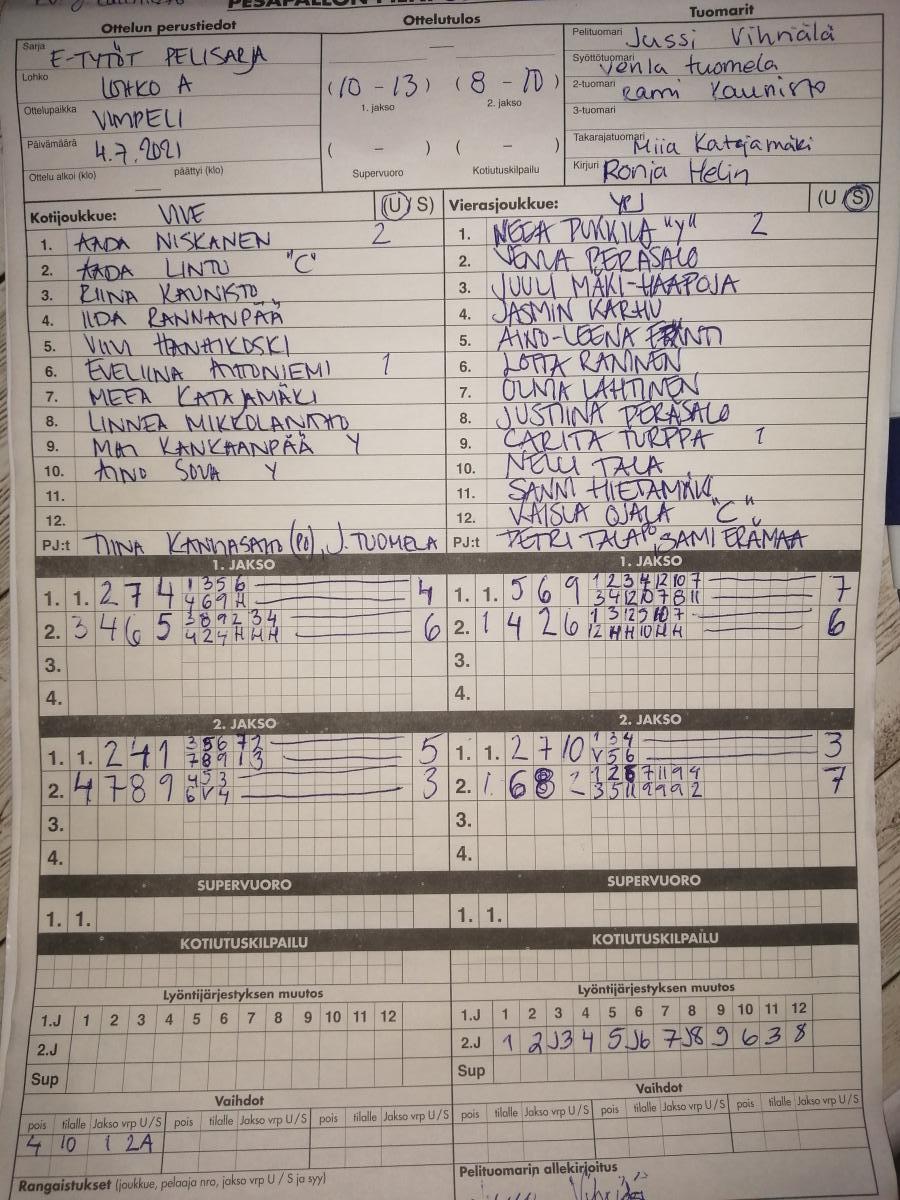 Ottelun perustiedot
Sarja E-TYTÖT PELISARJA
Lohko LOHKO A
Ottelupaikka VIMPELI
Päivämäärä 4.7.2021
Ottelu alkoi (klo) — päättyi (klo)
Ottelutulos
—
(10 - 13) (8 - 10)
1. jakso 2. jakso
( - ) ( - )
Supervuoro Kotiutuskilpailu
Tuomarit
Pelituomari Jussi Vihriälä
Syöttötuomari Venla tuomela
2-tuomari Rami Kaunisto
3-tuomari
Takarajatuomari Miia Katajamäki
Kirjuri Ronja Helin
Kotijoukkue: VIVE (U/S)
1. AADA NISKANEN 2
2. AADA LINTU "C"
3. RIINA KAUNISTO
4. IIDA RANNANPÄÄ
5. VIIVI HANHIKOSKI
6. EVELIINA ANTONIEMI 1
7. MEEA KATAJAMÄKI
8. LINNEA MIKKOLANAHO
9. KANKAANPÄÄ Y
10. AINO SOVA Y
11.
12.
PJ:t TIINA KANGASAHO (PO), J. TUOMELA
Vierasjoukkue: YPJ (U/S)
1. NEEA PUKKILA "Y" 2
2. VENLA PERÄSALO
3. JUULI MÄKI-HAAPOJA
4. JASMIN KARHU
5. AINO-LEENA
6. LOTTA RANINEN
7. OLIVIA LAHTINEN
8. JUSTIINA PERÄSALO
9. CARITA TURPPA 1
10. NELLI TALA
11. SANNI HIETAMÄKI
12. OJALA "C"
PJ:t PETRI TALA PO, SAMI ERÄMAA
1. JAKSO
1. 1. 2 7 4 1 3 5 6 4
4 6 9 H
2. 3 4 6 5 3 8 9 2 3 4 6
4 2 4 H H H
3.
4.
1. JAKSO
1. 1. 5 6 9 1 2 3 4 12 10 7 7
3 4 12 10 7 8 11
2. 1 4 2 6 1 3 12 3 10 7 6
12 H H 10 H H
3.
4.
2. JAKSO
1. 1. 2 4 1 3 5 6 7 2 5
7 8 9 1 3
2. 4 7 8 9 4 5 3 3
6 V 4
3.
4.
2. JAKSO
1. 1. 2 7 10 1 3 4 3
V 5 6
2. 1. 6 8 2 1 2 6 7 11 9 9 7
3 5 11 9 9 9 2
3.
4.
SUPERVUORO
1. 1.
SUPERVUORO
1. 1.
KOTIUTUSKILPAILU
KOTIUTUSKILPAILU
Lyöntijärjestyksen muutos
1.J 1 2 3 4 5 6 7 8 9 10 11 12
2.J
Sup
Lyöntijärjestyksen muutos
1.J 1 2 3 4 5 6 7 8 9 10 11 12
2.J 1 2 J3 4 5 J6 7 J8 9 6 3 8
Sup
Vaihdot
pois tilalle Jakso vrp U/S pois tilalle Jakso vrp U/S pois tilalle Jakso vrp U/S
4 10 1 2A
Vaihdot
pois tilalle Jakso vrp U/S pois tilalle Jakso vrp U/S pois tilalle Jakso vrp U/S
Rangaistukset (joukkue, pelaaja nro, jakso vrp U / S ja syy)
Pelituomarin allekirjoitus